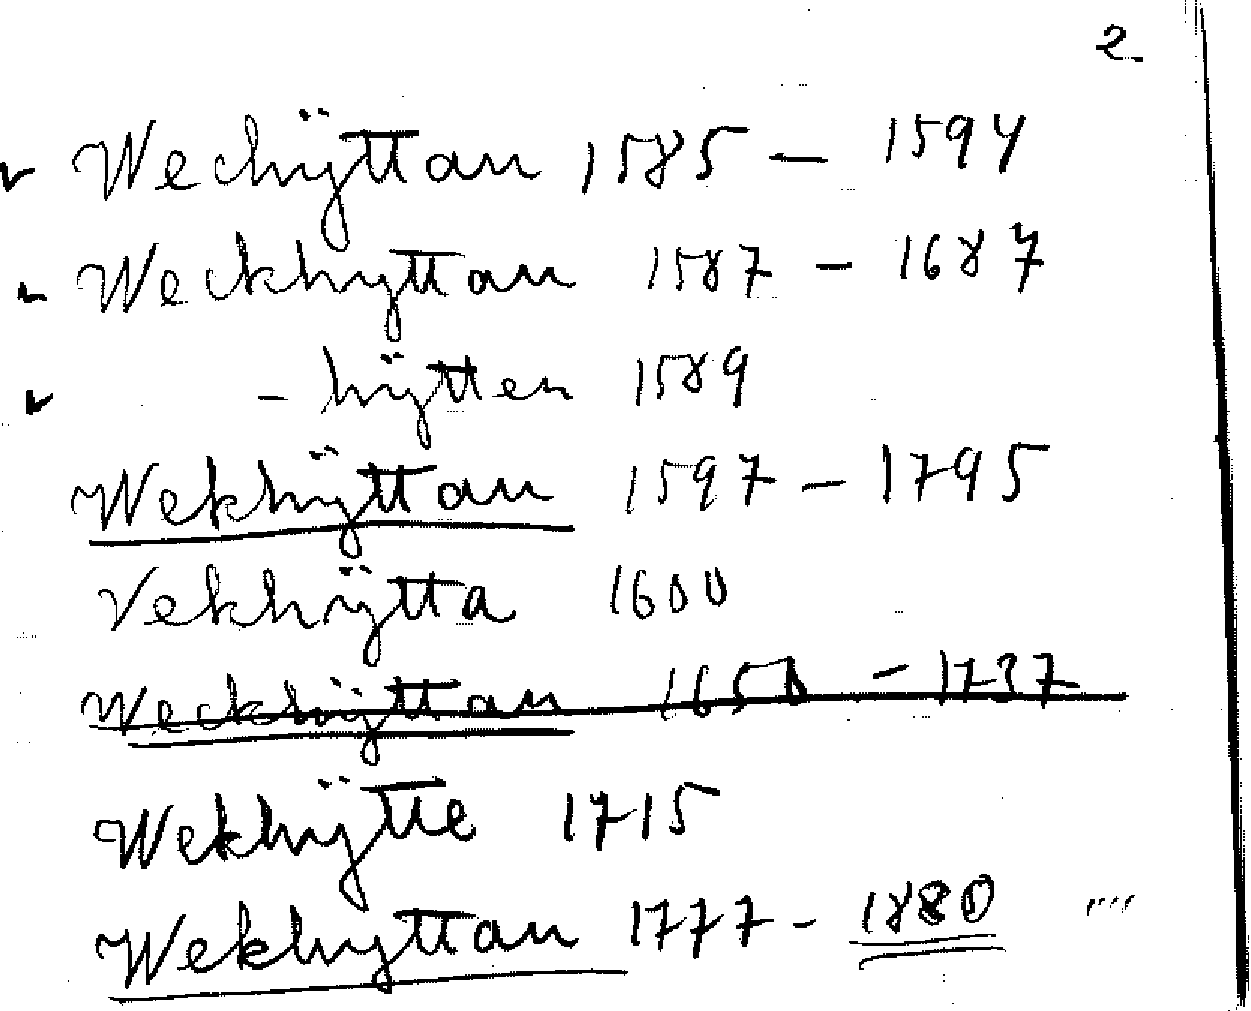 2
Wechÿttan 1585 – 1594
Weckhyttan 1587 – 1687
– hÿtten 1589
Wekhÿttan 1597 – 1795
Vekhÿtta 1600
Weckhÿttan 1650 – 1737
Wekhÿtte 1715
Wekhyttan 1777 – 1880 ""